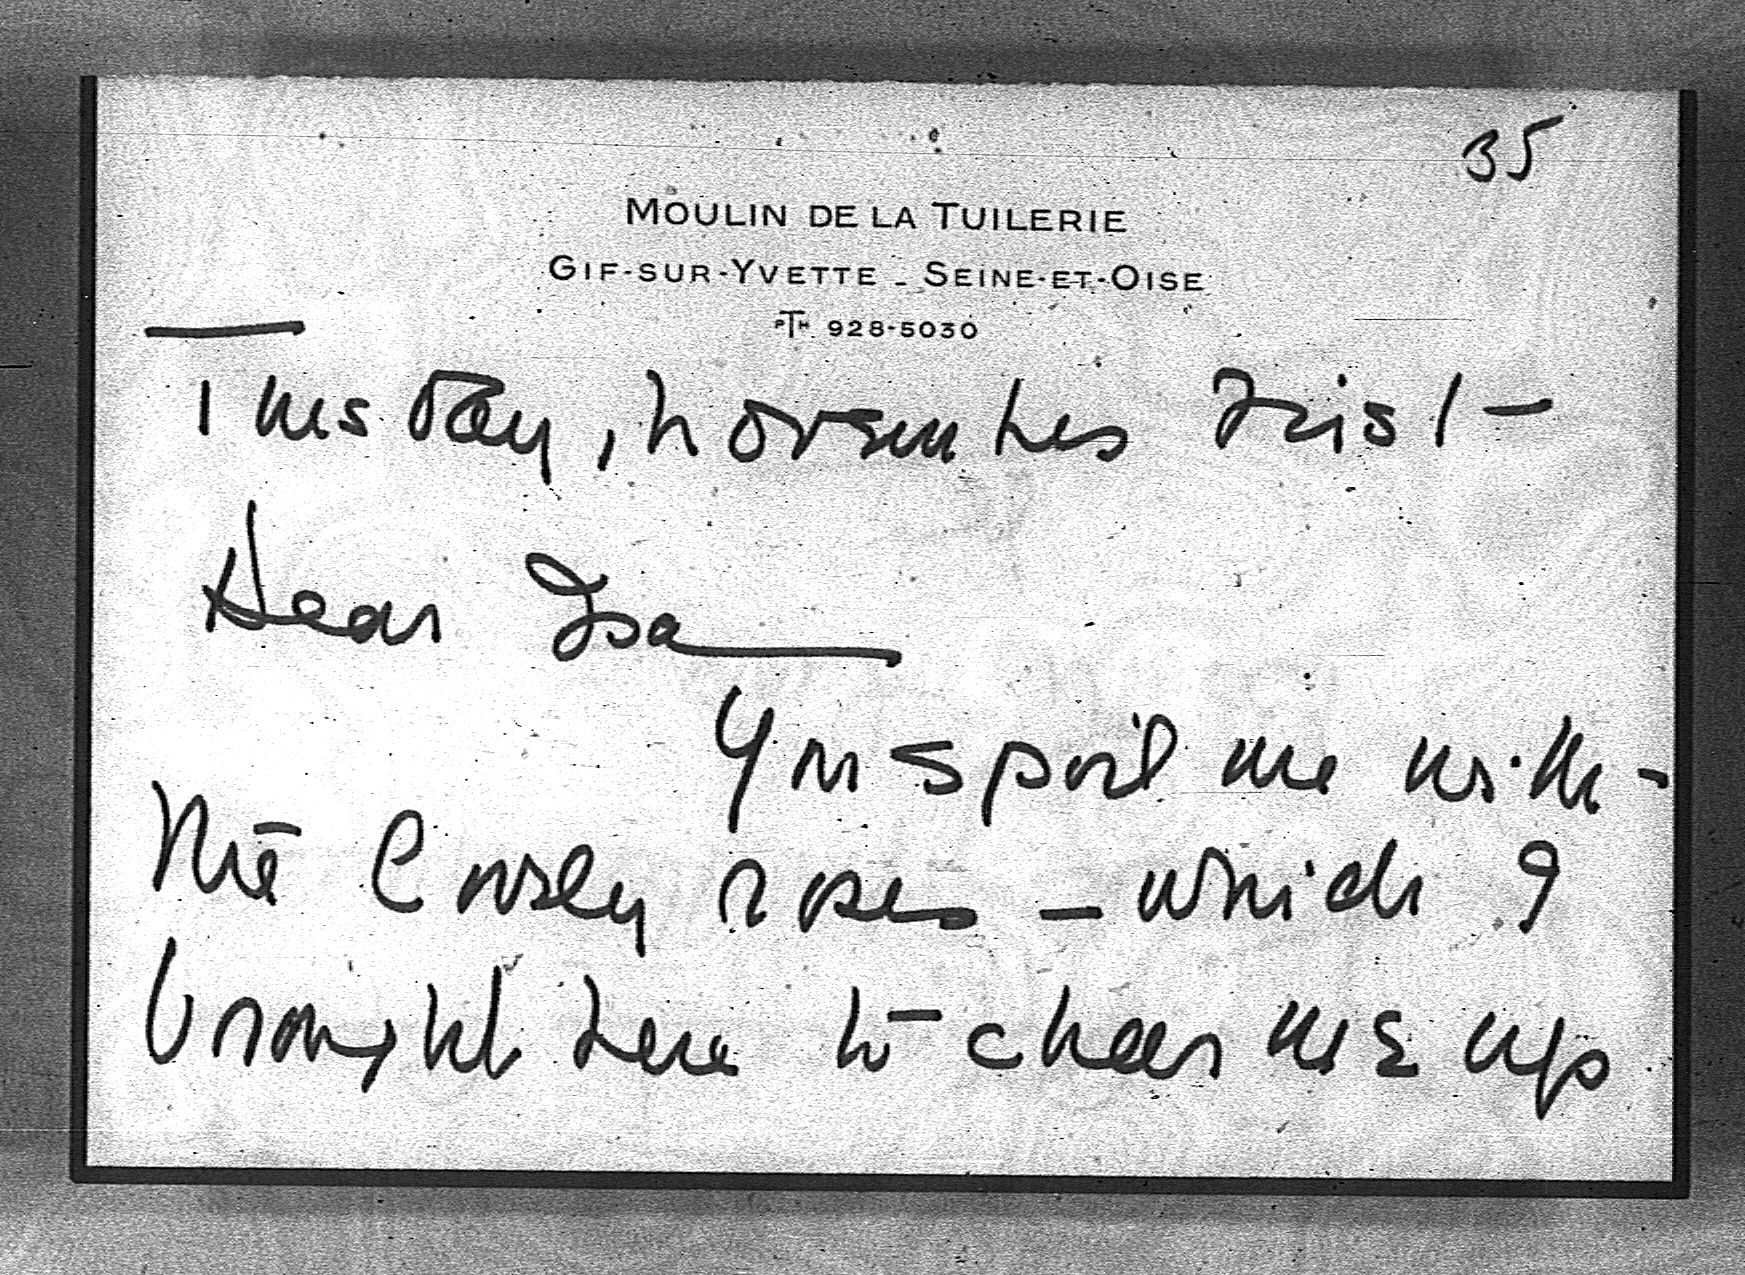 35
MOULIN DE LA TUILERIE
GIF-SUR-YVETTE - SEINE-ET-OISE
PTH 928-5030
Tuesday, November First -
Dear Isa
You spoil me with -
the lovely roses - which I
brought here to cheer me up